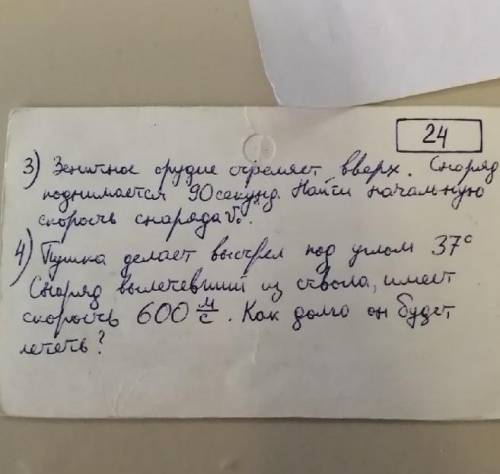 24
3) Зенитное орудие стреляет вверх. Снаряд
поднимается 90 секунд. Найти начальную
скорость снаряда V₀.
4) Пушка делает выстрел под углом 37°
Снаряд вылетевший из ствола, имеет
скорость 600 м/с. Как долго он будет
лететь?